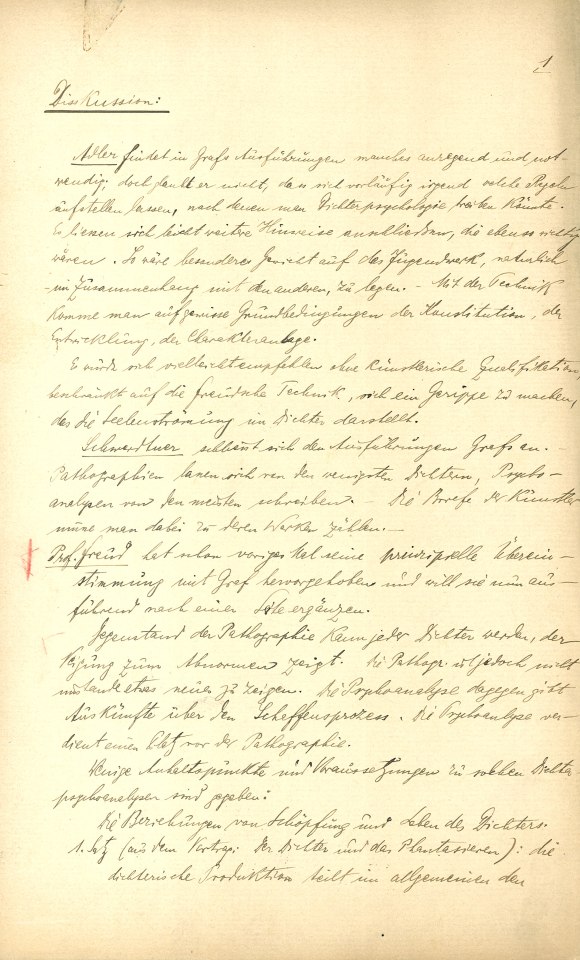 1
Diskussion:
Adler findet in Grafs Ausführungen manches anregend und not-
wendig; doch glaubt er nicht, dass sich vorläufig irgend welche
aufstellen lassen, nach denen man Dichterpsychologie treiben könnte.
Es liessen sich leicht weitere Hinweise anschließen, die ebenso wichtig
wären. So wäre besonderes Gewicht auf das Jugendwerk, natürlich
im Zusammenhang mit den anderen, zu legen. – Mit der Technik
komme man auf gewisse Grundbedingungen der Konstitution, der
Entwicklung, der Charakteranlage.
Es würde sich vielleicht empfehlen ohne künstlerische Qualifikation,
beschränkt auf die freudsche Technik, sich ein Gerippe zu machen,
das die Seelenströmung im Dichter darstellt.
Schwerdtner schliesst sich den Ausführungen Grafs an. –
Pathographien lassen sich von den wenigsten Dichtern, Psycho-
analysen von den meisten schreiben. – Die Briefe der Künstler
müsse man dabei zu deren Werken zählen. –
Prof. Freud hat schon voriges Mal seine prinzipielle Überein-
stimmung mit Graf hervorgehoben und will sie nun aus-
führend nach einer Seite ergänzen.
Gegenstand der Pathographie kann jeder Dichter werden, der
Neigung zum Abnormen zeigt. Die Pathogr. ist jedoch nicht
imstande etwas neues zu zeigen. Die Psychoanalyse dagegen gibt
Auskünfte über den Schaffensprozess. Die Psychoanalyse ver-
dient einen Platz vor der Pathographie.
Wenige Anhaltspunkte und Voraussetzungen zu solchen Dichter-
psychoanalysen sind gegeben:
Die Beziehungen von Schöpfung und Leben des Dichters.
1. Satz (aus dem Vortrag: Der Dichter und das Phantasieren): die
dichterische Produktion teilt im allgemeinen den